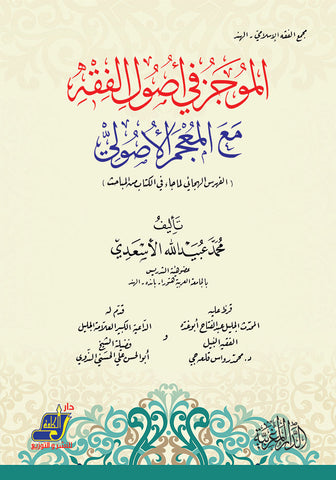 مجمع الفقه الإسلامي - الهند
الموجز في أصول الفقه
مع المعجم الأصولي
( الفهرس الهجائي لما جاء في الكتاب من المباحث )
تأليف
محمد عبيد الله الأسعدي
عضو هيئة التدريس
بالجامعة العربية هتورا - بانده - الهند
قرظ عليه
المحدث الجليل عبد الفتاح أبو غدة
الفقيه النبيل
د. محمد رواس قلعه جي
و
قدم له
الداعية الكبير العلامة الجليل
فضيلة الشيخ
أبو الحسن علي الحسني الندوي
دار
للنشر والتوزيع